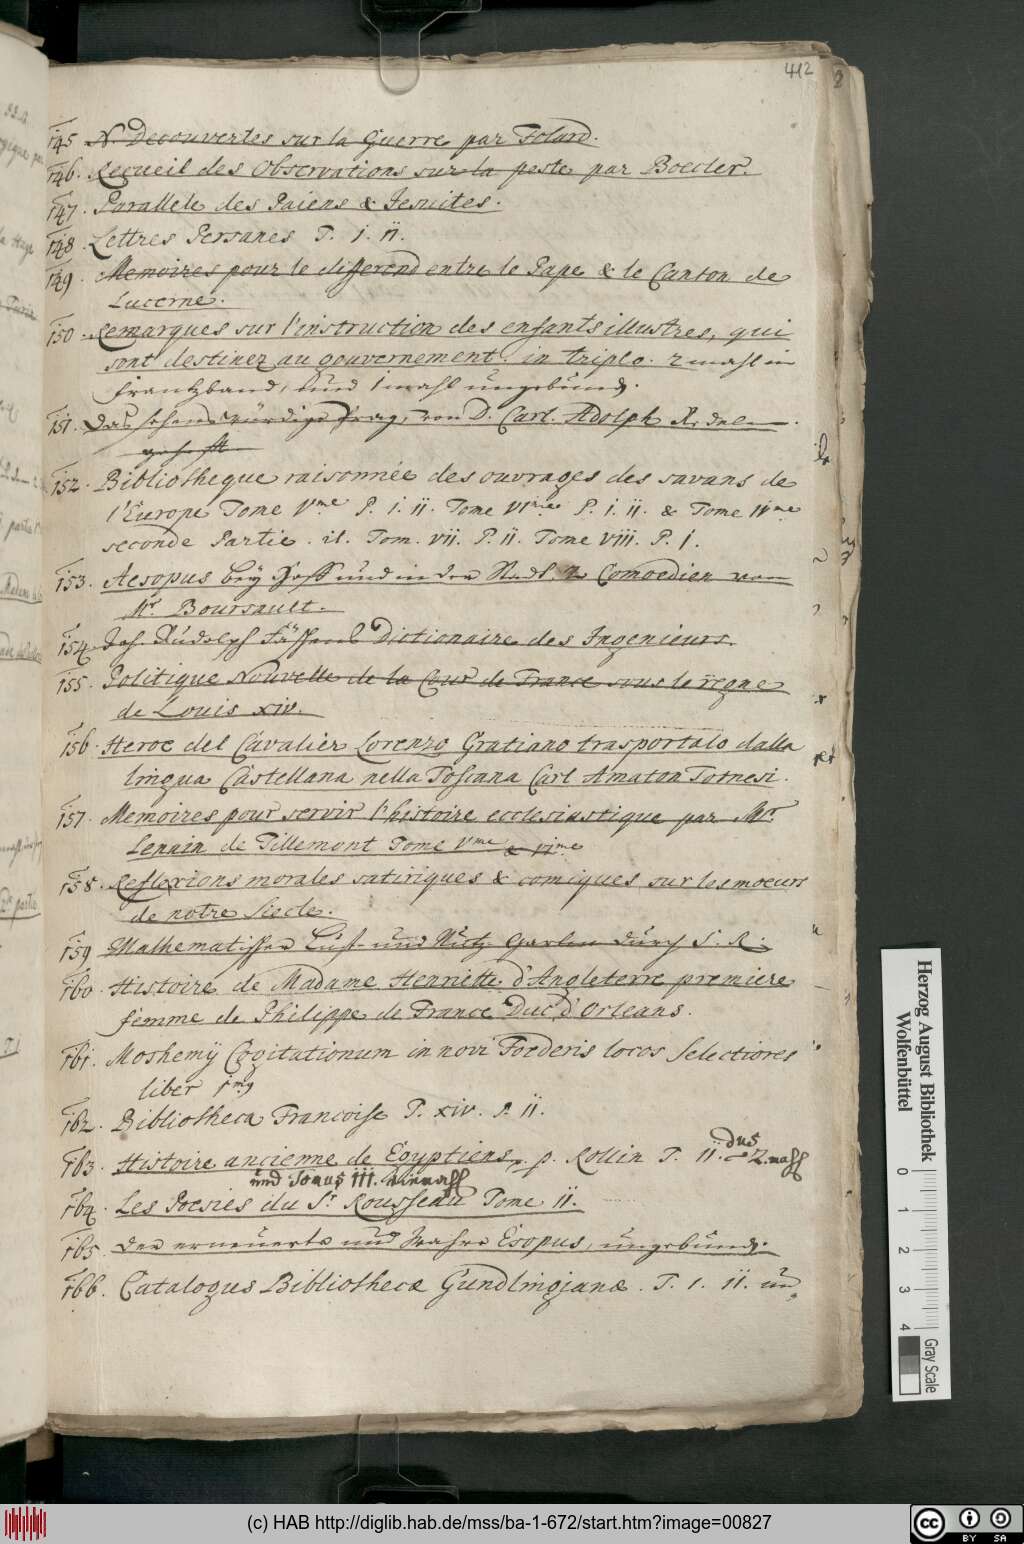 412
145 N. Decouvertes sur la Guerre par Folard.
146. Recueil des Observations sur la peste par Boecler.
147. Parallele des Paiens & Jesuites.
148. Lettres Persanes T. I. II.
149. Memoires pour le differend entre le Pape & le Canton de
Lucerne.
150. Remarques sur l'instruction des enfants illustres, qui
sont destinez au gouvernement. in triplo. 2 mahl in
Frantzband, und 1 mahl ungebund.
151. Das sehenswürdige Prag, von D. Carl Adolph Redeln
152. Bibliotheque raisonnée des ouvrages des savans de
l'Europe Tome Vme P. I. II. Tome VIme P. I. II. & Tome IVme
seconde Partie. it. Tom. VII. P. II. Tome VIII. P. I.
153. Aesopus bey Hoff und in der Stadt 2 Comoedien von
Mr Boursault.
154. Joh. Rudolph Fäschens Dictionaire des Ingenieurs.
155. Politique Nouvelle de la Cour de France sous le regne
de Louis XIV.
156. Heroe del Cavalier Lorenzo Gratiano trasportalo dalla
lingua Castellana nella Toscana Carl Amaton Tornesi.
157. Memoires pour servir l'histoire ecclesiastique par Mr.
Lenain de Tillemont Tome Vme & VIme
158. Reflexions morales satiriques & comiques sur les moeurs
de notre siecle.
159 Mathematischer Lust- und Nutz-Garten durch S. R.
160. Histoire de Madame Henriette d'Angleterre premiere
femme de Philippe de France Duc d'Orleans.
161. Moshemij Cogitationum in novi Foederis locos selectiores
liber
162. Bibliotheca Francoise T. XIV. P. II.
163. Histoire ancienne de Egyptiens p. p. Rollin T. II dus 2. mahl
und Tomus III.
164. Les Poesies du Sr Rousseau Tome II.
165. Der erneuerte und wahre Esopus, ungebund.
166. Catalogus Bibliothecæ Gundlingianæ. T. I. II. un
Herzog August Bibliothek
Wolfenbüttel
0 1 2 3 4
Gray Scale
(c) HAB http://diglib.hab.de/mss/ba-1-672/start.htm?image=00827
cc BY SA